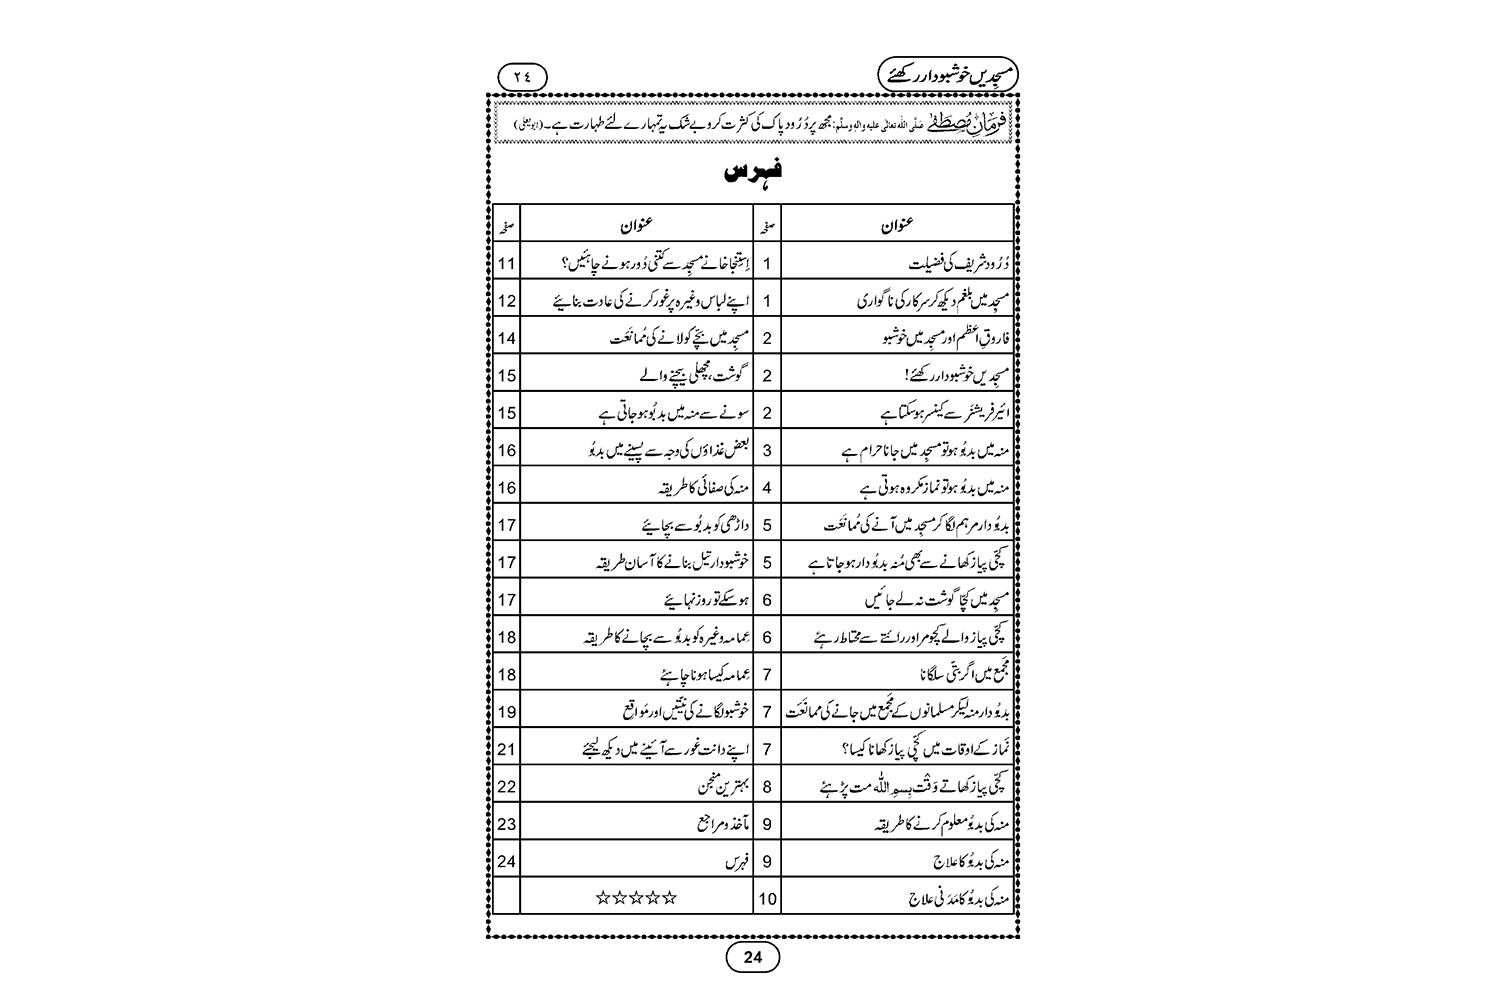 مسجِدیں خوشبودار رکھئے
٢٤
فرمانِ مُصطَفٰے صَلَّی اللہ تعالٰی علیہ والہٖ وسلَّم: مجھ پر دُرُود پاک کی کثرت کرو بے شک یہ تمہارے لئے طہارت ہے۔ (ابو یعلی)
فہرس
عنوان صفحہ عنوان صفحہ
دُرُود شریف کی فضیلت 1 اِستِنجا خانے مسجِد سے کتنی دُور ہونے چاہئیں؟ 11
مسجِد میں بلغم دیکھ کر سرکار کی ناگواری 1 اپنے لباس وغیرہ پر غور کرنے کی عادت بنائیے 12
فاروقِ اعظم اور مسجِد میں خوشبو 2 مسجِد میں بچّے کو لانے کی مُمانَعَت 14
مسجِدیں خوشبودار رکھئے! 2 گوشت، مچھلی بیچنے والے 15
ائیر فریشنَر سے کینسر ہوسکتا ہے 2 سونے سے منہ میں بدبُو ہوجاتی ہے 15
منہ میں بدبُو ہو تو مسجِد میں جانا حرام ہے 3 بعض غذاؤں کی وجہ سے پسینے میں بدبُو 16
منہ میں بدبُو ہو تو نماز مکروہ ہوتی ہے 4 منہ کی صفائی کا طریقہ 16
بدبُو دار مرہم لگا کر مسجد میں آنے کی مُمانَعَت 5 داڑھی کو بدبُو سے بچائیے 17
کچّی پیاز کھانے سے بھی مُنہ بدبُو دار ہوجاتا ہے 5 خوشبودار تیل بنانے کا آسان طریقہ 17
مسجِد میں کچّا گوشت نہ لے جائیں 6 ہوسکے تو روز نہائیے 17
کچّی پیاز والے کچومر اور رائتے سے محتاط رہئے 6 عِمامہ وغیرہ کو بدبُو سے بچانے کا طریقہ 18
مَجمَع میں اگر بتّی سلگانا 7 عِمامہ کیسا ہونا چاہئے 18
بدبُو دار منہ لیکر مسلمانوں کے مَجمَع میں جانے کی ممانَعَت 7 خوشبو لگانے کی نیّتیں اور مَواقِع 19
نَماز کے اوقات میں کچّی پیاز کھانا کیسا؟ 7 اپنے دانت غور سے آئینے میں دیکھ لیجئے 21
کچّی پیاز کھاتے وَقْت بِسمِ اللّٰہ مت پڑہئے 8 بہترین منجن 22
منہ کی بدبُو معلوم کرنے کا طریقہ 9 مآخذ و مراجع 23
منہ کی بدبُو کا علاج 9 فہرس 24
منہ کی بدبُو کا مَدَنی علاج 10 ☆☆☆☆☆
24